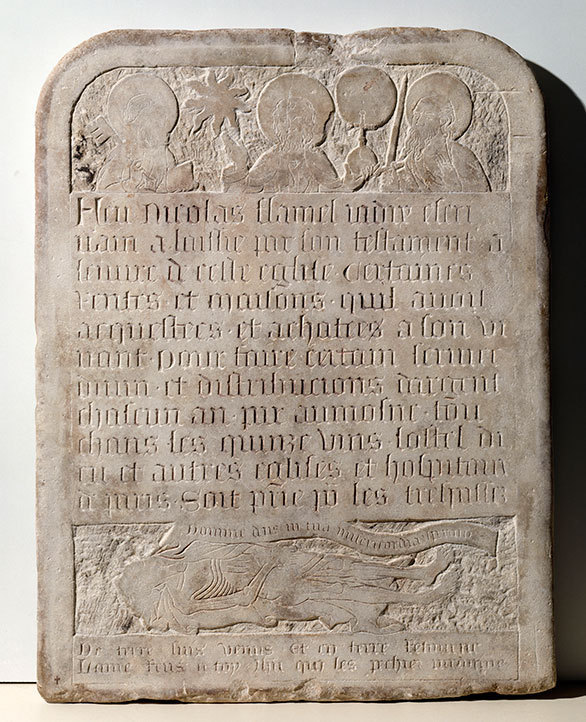 Feu nicolas flamel iadiz escri
uain a laissie par son testament a
leuure de ceste eglise certaines
rentes et maisons · quil auoit
acquestees · et achatees a son vi
uant · pour faire certain seruice
diuin · et distribucions dargent
chascun an · par aumosne · tou
chans les quinze vins · lostel di
eu et autres eglises et hospitaux
de paris · Soit prie pr les trespassez
Domine deus in tua misericordia speraui
De terre suis venus et en terre retourne
Lame rens a toy ihu qui les pechiez pardonne